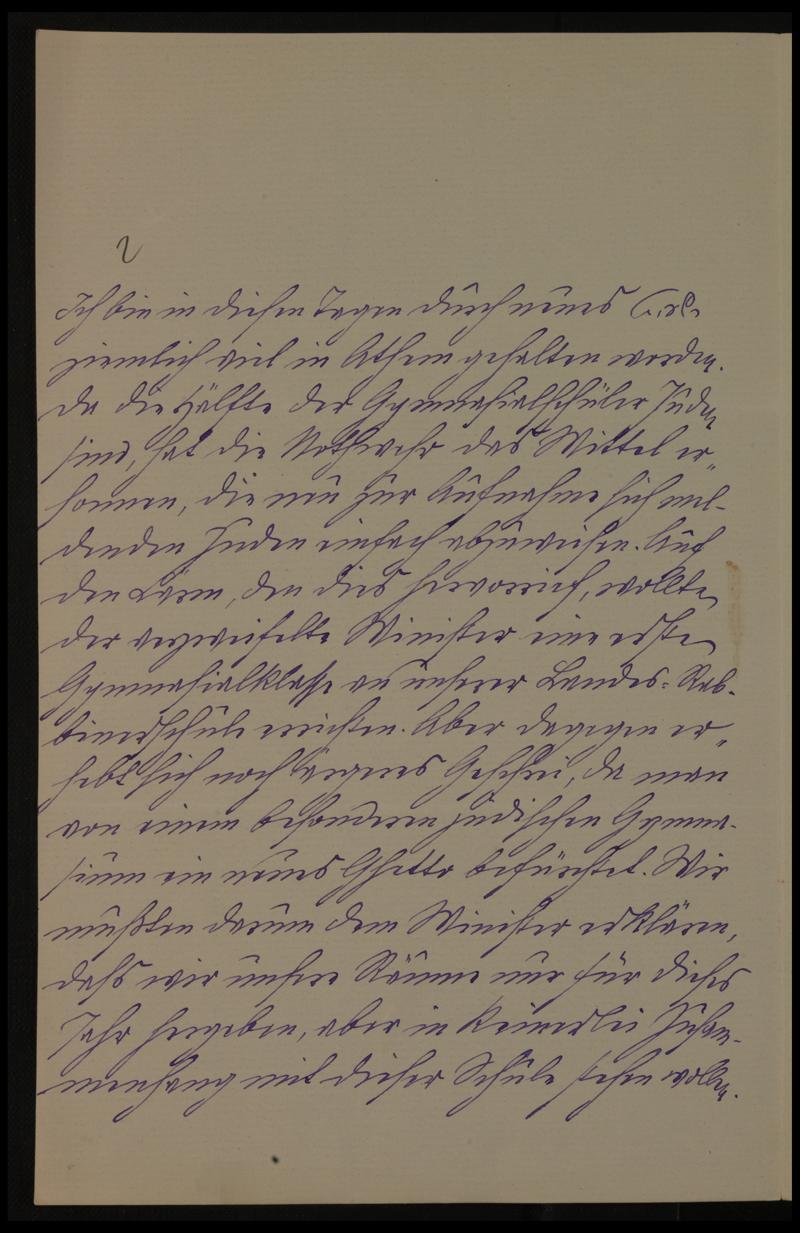 2
Ich bin in diesen Tagen durch neues
ziemlich viel in Athem gehalten worden.
Da die Hälfte der Gymnasialschüler Juden
sind, hat die Nothwehr das Mittel er-
sonnen, die neu zur Aufnahme sich mel-
denden Juden einfach abzuweisen. Auf
den Lärm, den dies hervorrief, wollte
der verzweifelte Minister eine erste
Gymnasialklasse an unserer Landes-Rab-
binerschule errichten. Aber dagegen er-
hebt sich noch ärgeres Geschrei, da man
von einem besonderen jüdischen Gymna-
sium ein neues Ghetto befürchtet. Wir
mußten darum dem Minister erklären,
daß wir unsere Räume nur für dieses
Jahr hergeben, aber in keinerlei Zusam-
menhang mit dieser Schule stehen wollen.